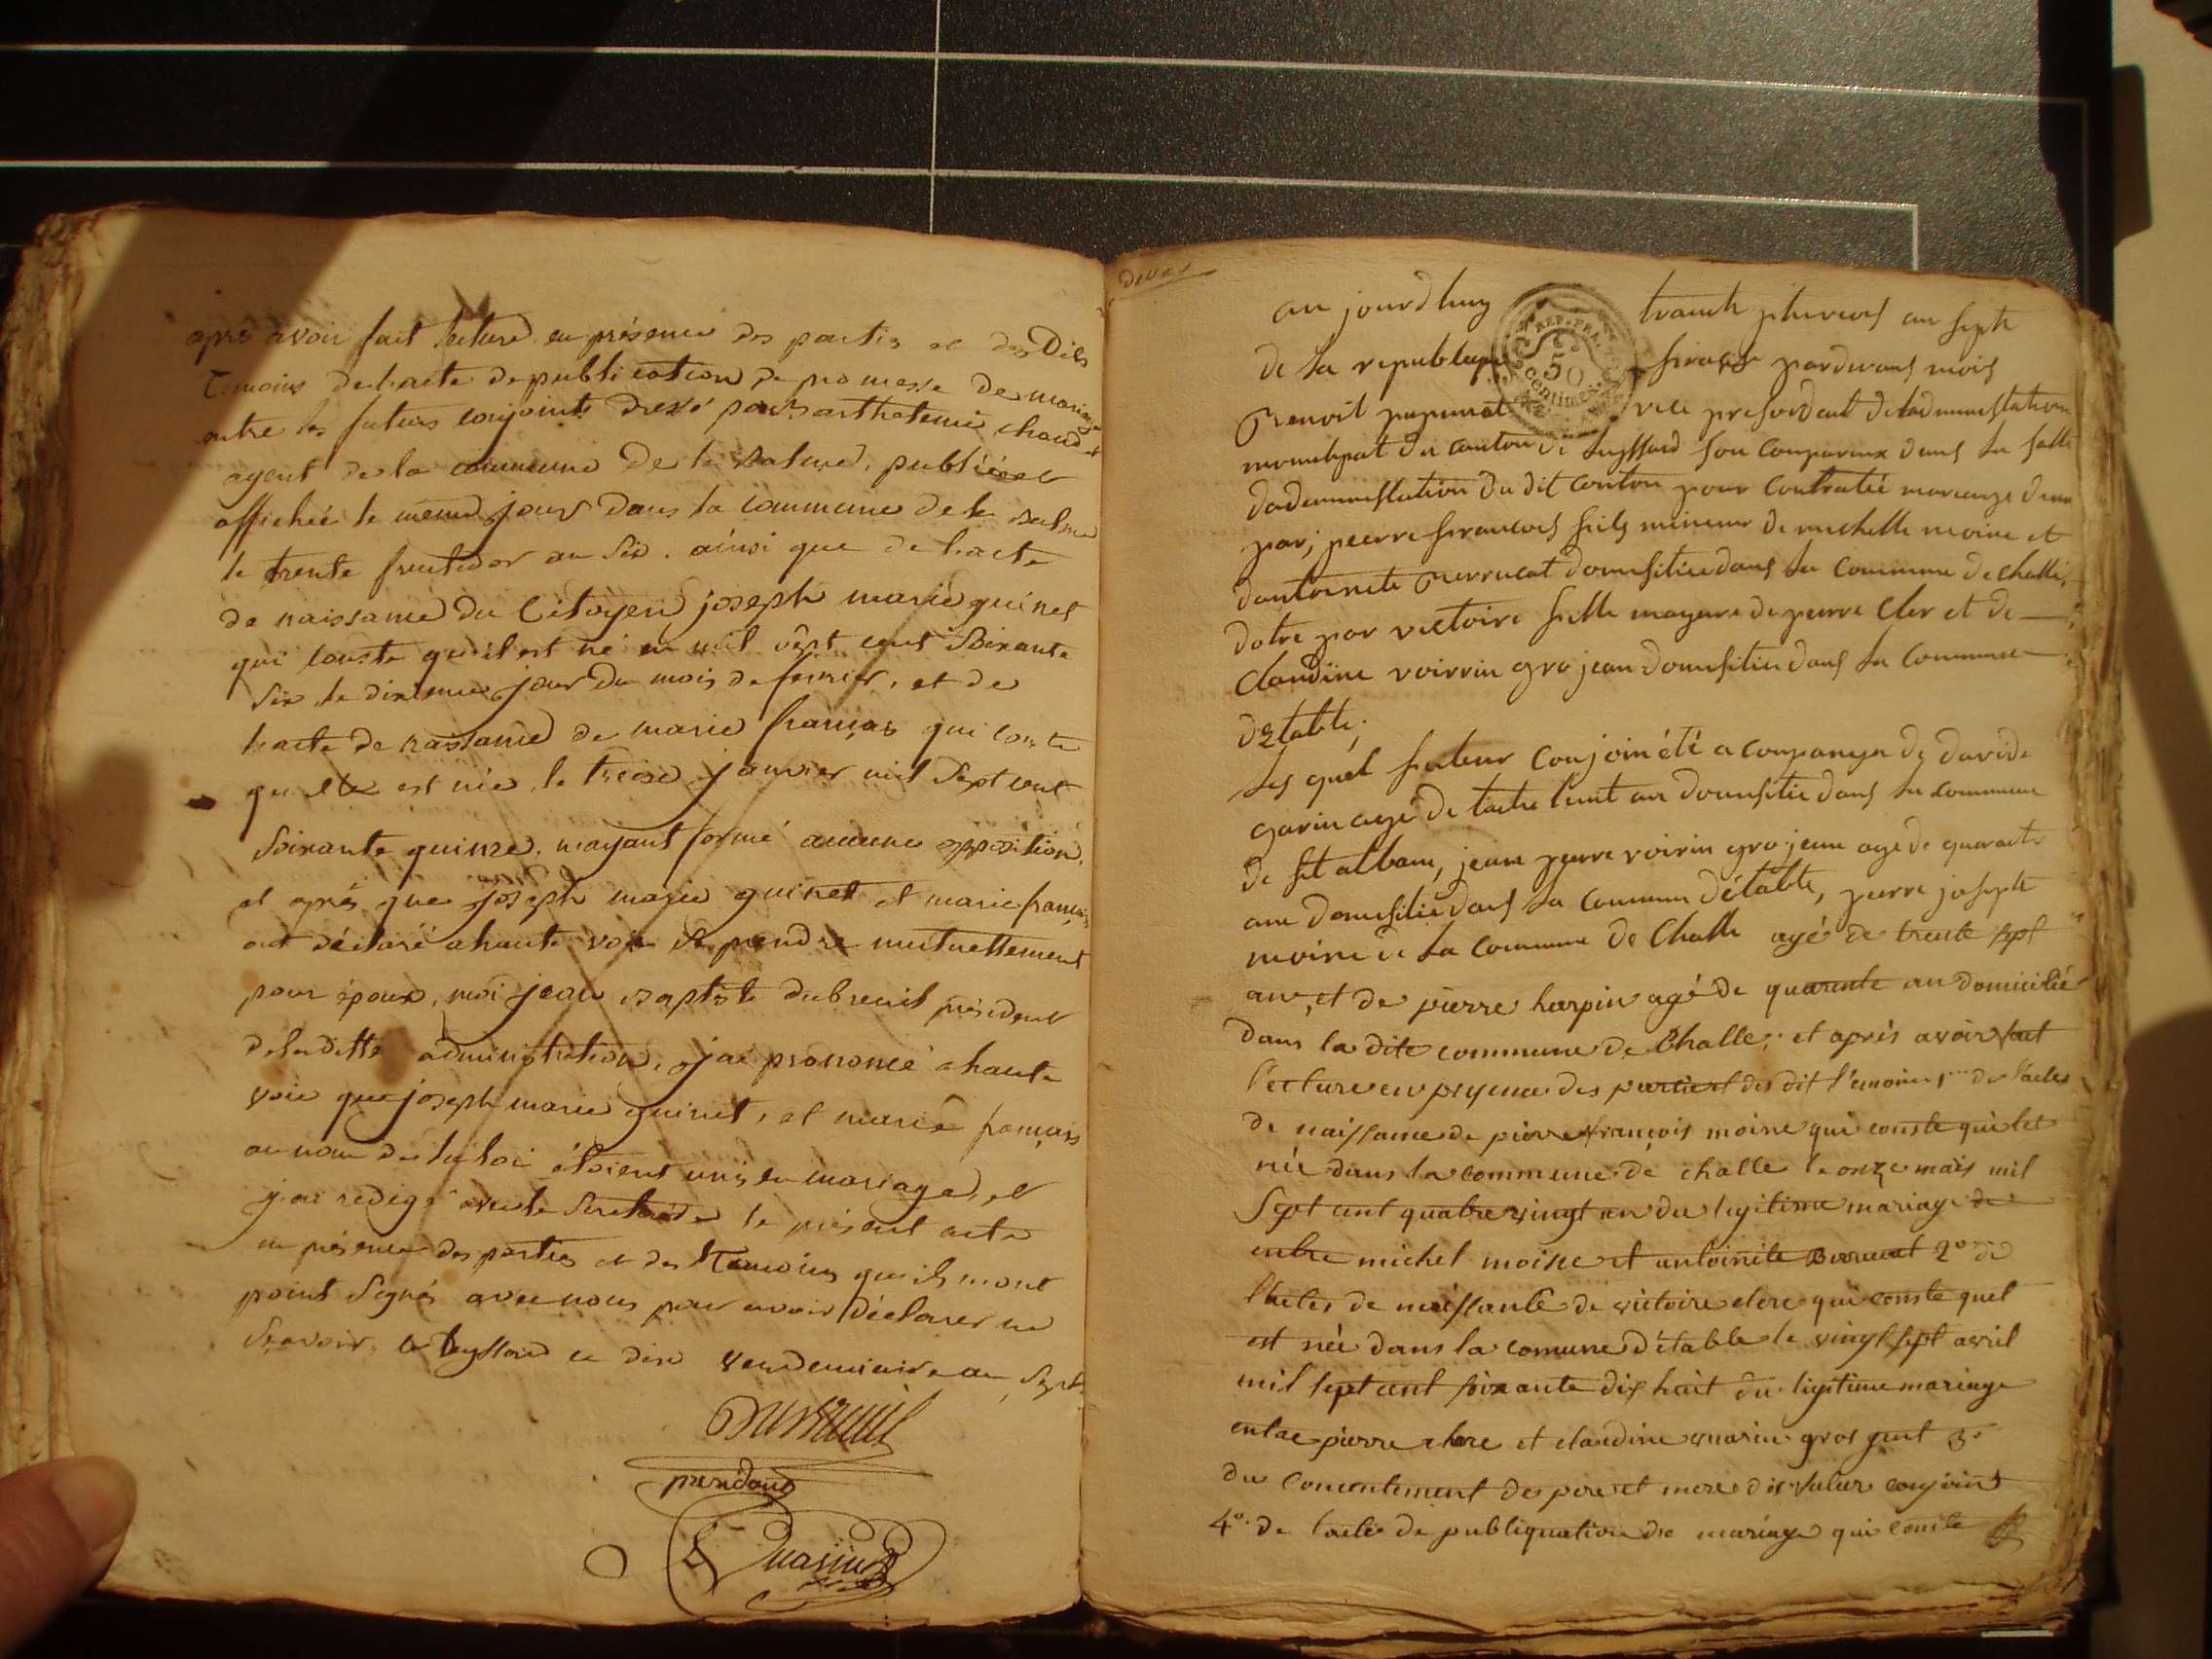 après avoir fait lecture en présence des parties et des Dits
Témoins de l'acte de publication de promesse de mariage
entre les futurs conjoints dressé par Barthelemi chaud
agent de la commune de la Balme, publiée et
affichée le même jour dans la commune de la Balme
le trente fructidor an Six. ainsi que de l'acte
de naissance du Citoyen joseph marie guinet
qui conste qu'il est né en mil sept cent Soixante
Six le dixième jour du mois de fevrier, et de
l'acte de naissance de marie français qui conste
qu elle est née le treize janvier mil Sept cent
Soixante quinze. n'ayant formé aucune opposition,
et après que joseph marie guinet et marie français
ont déclaré a haute voix se prendre mutuellement
pour époux, moi jean Baptiste dubreuil président
de la ditte administration, j'ai prononcé a haute
voix que joseph marie guinet, et marie français
au nom de la loi étoient unis en mariage, et
j'ai redigé avec le Secretaire le présent acte
en présence des parties et des Temoins qui ils n'ont
point Signés avec nous pour avoir déclarer ne
Scavoir, a leyssard ce dix vendemiaire an Sept.
Dubreuil
au jourd huy
de la republique
50 centimes
REP. FRA.
an septe
pardevant mois
Benoit vice president de ladministration
du canton de Leyssard son comparue dans la salle
dadministration du dit canton pour contratée mariage dune
par, pierre francois fils mineur de michelle moine et
dantoinete domisiliée dans la commune de challe,
dotre par victoire fille mayure de pierre Cler et de
Claudine voirrin gro jean domisiliée dans la commune
détable;
les quel futeur conjoin été a companyé de davide
garin agé de an domisilie dans la commune
de st alban, jean pierre voirin gro jean age de quarante
ans domisilié dans la commune détable, pierre joseph
moine de la commune de Challe agé de trente sept
ans, et de pierre harpin agé de quarante an domicilié
dans la dite commune de Challe; et après avoir fait
l'ecture en prezence des parties et des dit t'emoins 1° de l'actes
de naissance de pierre françois moine qui conste qu'il et
née dans la commune de challe le onze mais mil
Sept cent quatre vingt un du legitime mariage de
entre michel moine et antoinite 2° de
l'actes de naissance de victoire clerc qui conste quel
est née dans la comune d'étable le vingt sept avril
mil sept cent soixante dix huit du ligitime mariage
entre pierre clerc et claudine 3°
du consentement des pere et mere des futur conjoins
4°. de l'actes de publiquation de mariage qui conste